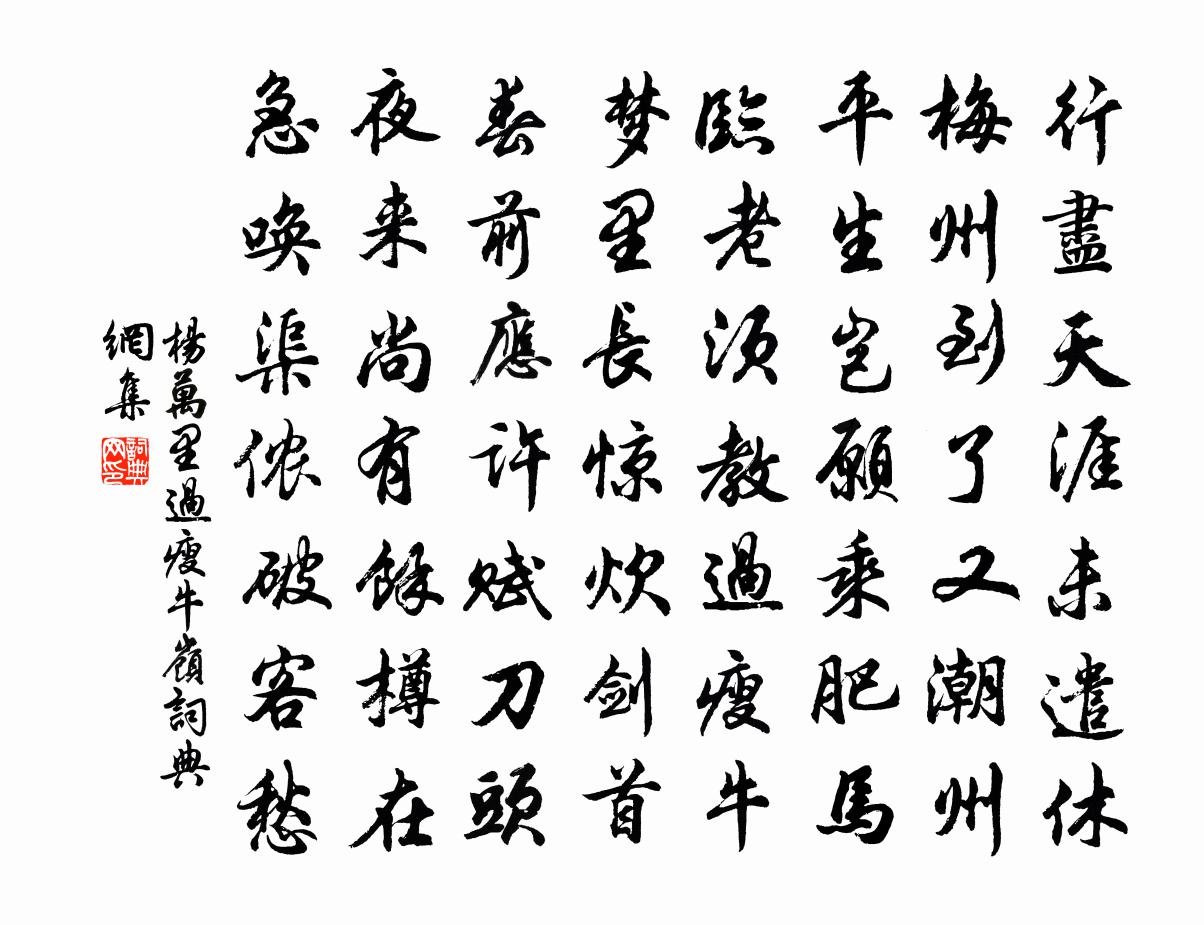 行盡天涯未遣休
梅州到了又潮州
平生岂願乘肥馬
臨老須教過瘦牛
梦里長惊炊剑首
春前應许赋刀頭
夜来尚有餘樽在
急唤渠侬破客愁
楊萬里過瘦牛嶺詞典
網集
詞典
网印